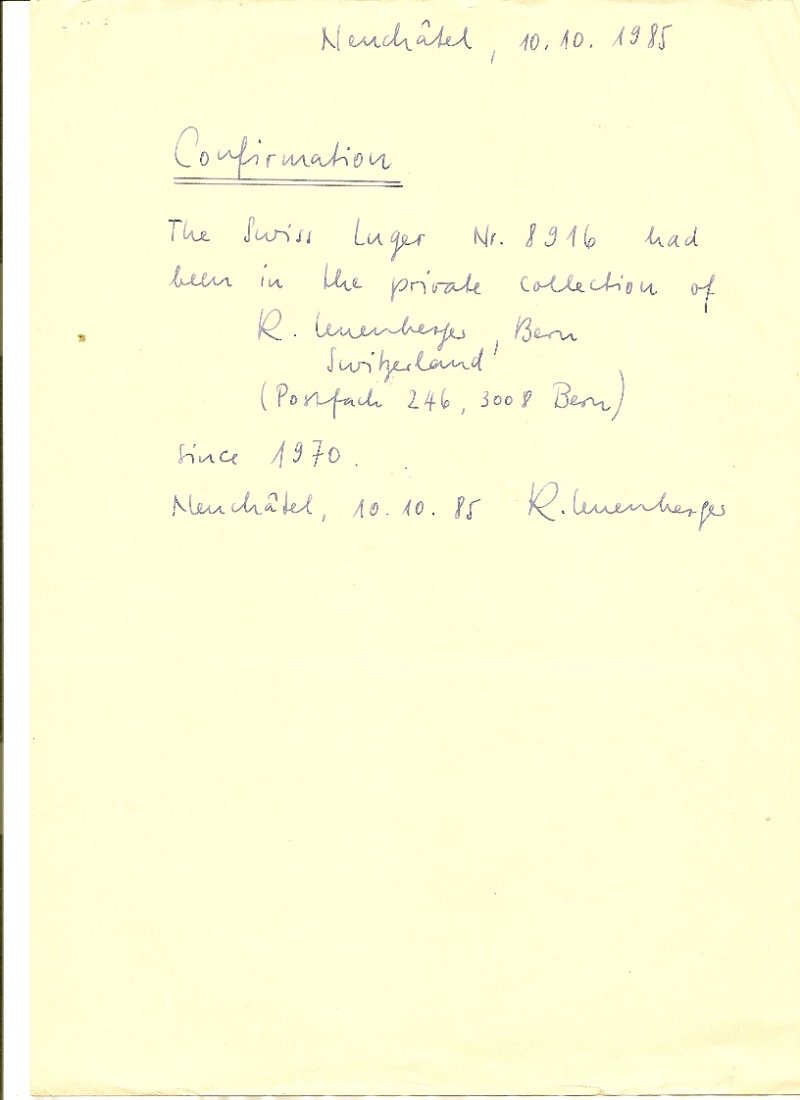 Neuchâtel, 10.10.1985
Confirmation
The Swiss Luger Nr. 8916 had
been in the private collection of
R. Leuenberger, Bern
Switzerland
(Postfach 246, 3008 Bern)
since 1970.
Neuchâtel, 10.10.85 R. Leuenberger